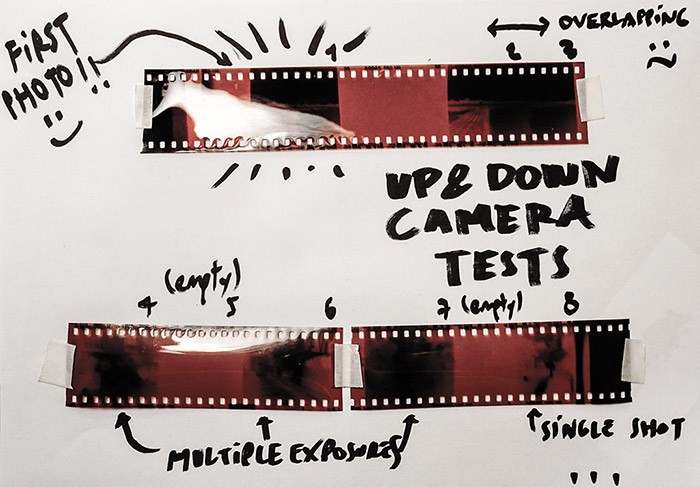 FIRST
PHOTO!!
OVERLAPPING
1 2 3
UP & DOWN
CAMERA
TESTS
(empty)
4 5 6
7 (empty) 8
MULTIPLE EXPOSURES
SINGLE SHOT
...